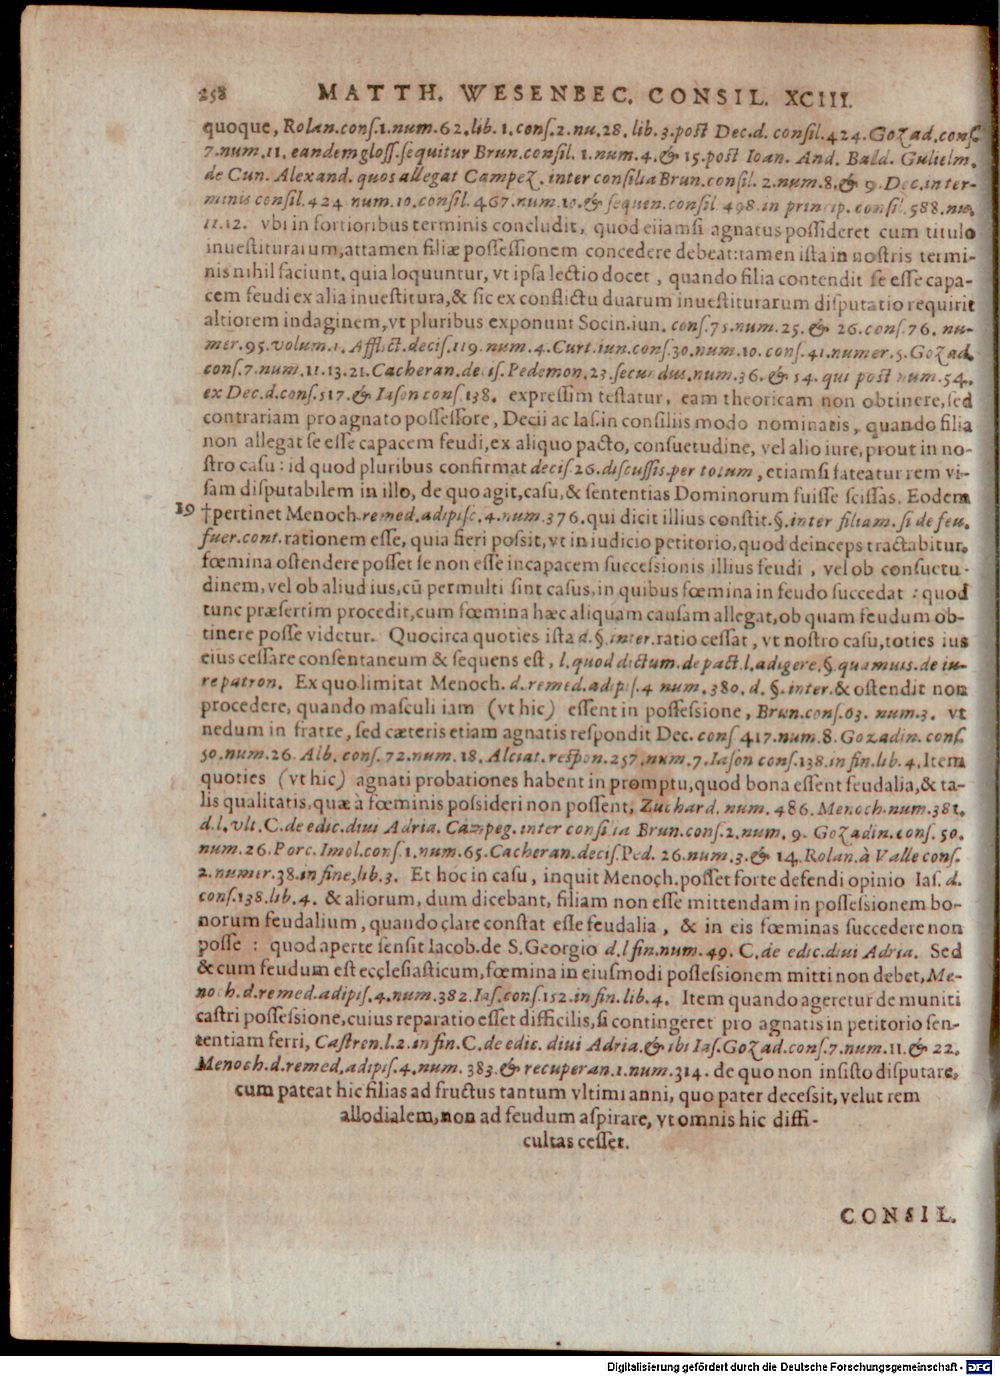 258 MATTH. WESENBEC. CONSIL. XCIII.
quoque, Rolan.conſ.1.num.62.lib. 1. conſ.2.nu.28. lib.3.poſt Dec.d. conſil.424.Gozad.conſ.
7.num.11. eandem gloſſ.ſequitur Brun.conſil. 1.num.4.& 15.poſt Ioan. And. Bald. Gulielm.
de Cun. Alexand. quos allegat Campez. inter conſilia Brun.conſil. 2.num.8.& 9. Dec.in ter-
minis conſil.424 num.10.conſil. 467.num.10.& ſequen.conſil 498.in princip. conſil.588.nu.
11.12. vbi in fortioribus terminis concludit, quod etiamſi agnatus poſſideret cum titulo
inueſtiturarum,attamen filiæ poſſeſſionem concedere debeat:tamen iſta in noſtris termi-
nis nihil faciunt, quia loquuntur, vt ipſa lectio docet, quando filia contendit ſe eſſe capa-
cem feudi ex alia inueſtitura,& ſic ex conflictu duarum inueſtiturarum diſputatio requirit
altiorem indaginem,vt pluribus exponunt Socin.iun. conſ.75.num.25. & 26.conſ.76. nu-
mer.95.volum.1. Afflict.deciſ.119.num.4.Curt.iun.conſ.30.num.10. conſ.41.numer.5.Gozad.
conſ.7.num.11.13.21.Cacheran.deciſ.Pedemon.23.ſecundus,num.36.& 54. qui poſt num.54.
ex Dec.d.conſ.517.& Iaſon conſ.138. expreſſim teſtatur, eam theoricam non obtinere,ſed
contrariam pro agnato poſſeſſore, Decii ac Iaſ.in conſiliis modo nominatis, quando filia
non allegat ſe eſſe capacem feudi,ex aliquo pacto, conſuetudine, vel alio iure, prout in no-
ſtro caſu: id quod pluribus confirmat deciſ.26.diſcuſſis.per totum, etiamſi fateatur rem vi-
ſam diſputabilem in illo, de quo agit,caſu,& ſententias Dominorum fuiſſe ſciſſas. Eodem
19 †pertinet Menoch.remed.adipiſc.4.num.376.qui dicit illius conſtit.§.inter filiam.ſi de feu.
fuer.cont.rationem eſſe, quia fieri poſſit,vt in iudicio petitorio,quod deinceps tractabitur,
fœmina oſtendere poſſet ſe non eſſe incapacem ſucceſſionis illius feudi, vel ob conſuetu-
dinem,vel ob aliud ius,cũ permulti ſint caſus,in quibus fœmina in feudo ſuccedat: quod
tunc præſertim procedit,cum fœmina hæc aliquam cauſam allegat,ob quam feudum ob-
tinere poſſe videtur. Quocirca quoties iſta d.§.inter.ratio ceſſat, vt noſtro caſu,toties ius
eius ceſſare conſentaneum & ſequens eſt, l.quod dictum.de pact.l.adigere.§.quamuis.de iu-
re patron. Ex quo limitat Menoch. d.remed.adipiſ.4 num.380.d. §.inter.& oſtendit non
procedere, quando maſculi iam (vt hic) eſſent in poſſeſſione, Brun.conſ.63. num.3. vt
nedum in fratre, ſed cæteris etiam agnatis reſpondit Dec. conſ 417.num.8.Gozadin. conſ.
50.num.26. Alb. conſ. 72.num.18. Alciat.reſpon.257.num.7.Iaſon conſ.138.in fin.lib.4.Item
quoties (vt hic) agnati probationes habent in promptu,quod bona eſſent feudalia,& ta-
lis qualitatis,quæ à fœminis poſsideri non poſſent, Zuchard. num. 486.Menoch.num.381.
d.l.vlt.C.de edic.diui Adria. Campeg.inter conſilia Brun.conſ.2.num. 9. Gozadin.conſ. 50.
num.26.Porc.Imol.conſ.1.num.65.Cacheran.deciſ.Ped. 26.num.3.& 14.Rolan.à Valle conſ.
2.numer.38.in fine,lib.3. Et hoc in caſu, inquit Menoch.poſſet forte defendi opinio Iaſ.d.
conſ.138.lib.4. & aliorum, dum dicebant, filiam non eſſe mittendam in poſſeſsionem bo-
norum feudalium, quando clare conſtat eſſe feudalia, & in eis fœminas ſuccedere non
poſſe: quod aperte ſenſit Iacob.de S.Georgio d.l fin.num.49. C.de edic.diui Adria. Sed
& cum feudum eſt eccleſiaſticum,fœmina in eiuſmodi poſſeſsionem mitti non debet,Me-
noch.d.remed.adipiſ.4.num.382.Iaſ.conſ.152.in fin.lib.4. Item quando ageretur de muniti
caſtri poſſeſsione,cuius reparatio eſſet difficilis,ſi contingeret pro agnatis in petitorio ſen-
tentiam ferri, Caſtren.l.2.in fin.C.de edic. diui Adria.& ibi Iaſ.Gozad.conſ.7.num.11.& 22.
Menoch.d.remed.adipiſ.4.num. 383.& recuperan.1.num.314. de quo non inſiſto diſputare,
cum pateat hic filias ad fructus tantum vltimi anni, quo pater deceſsit, velut rem
allodialem,non ad feudum aſpirare, vt omnis hic diffi-
cultas ceſſet.
CONSIL.
Digitalisierung gefördert durch die Deutsche Forschungsgemeinschaft - DFG